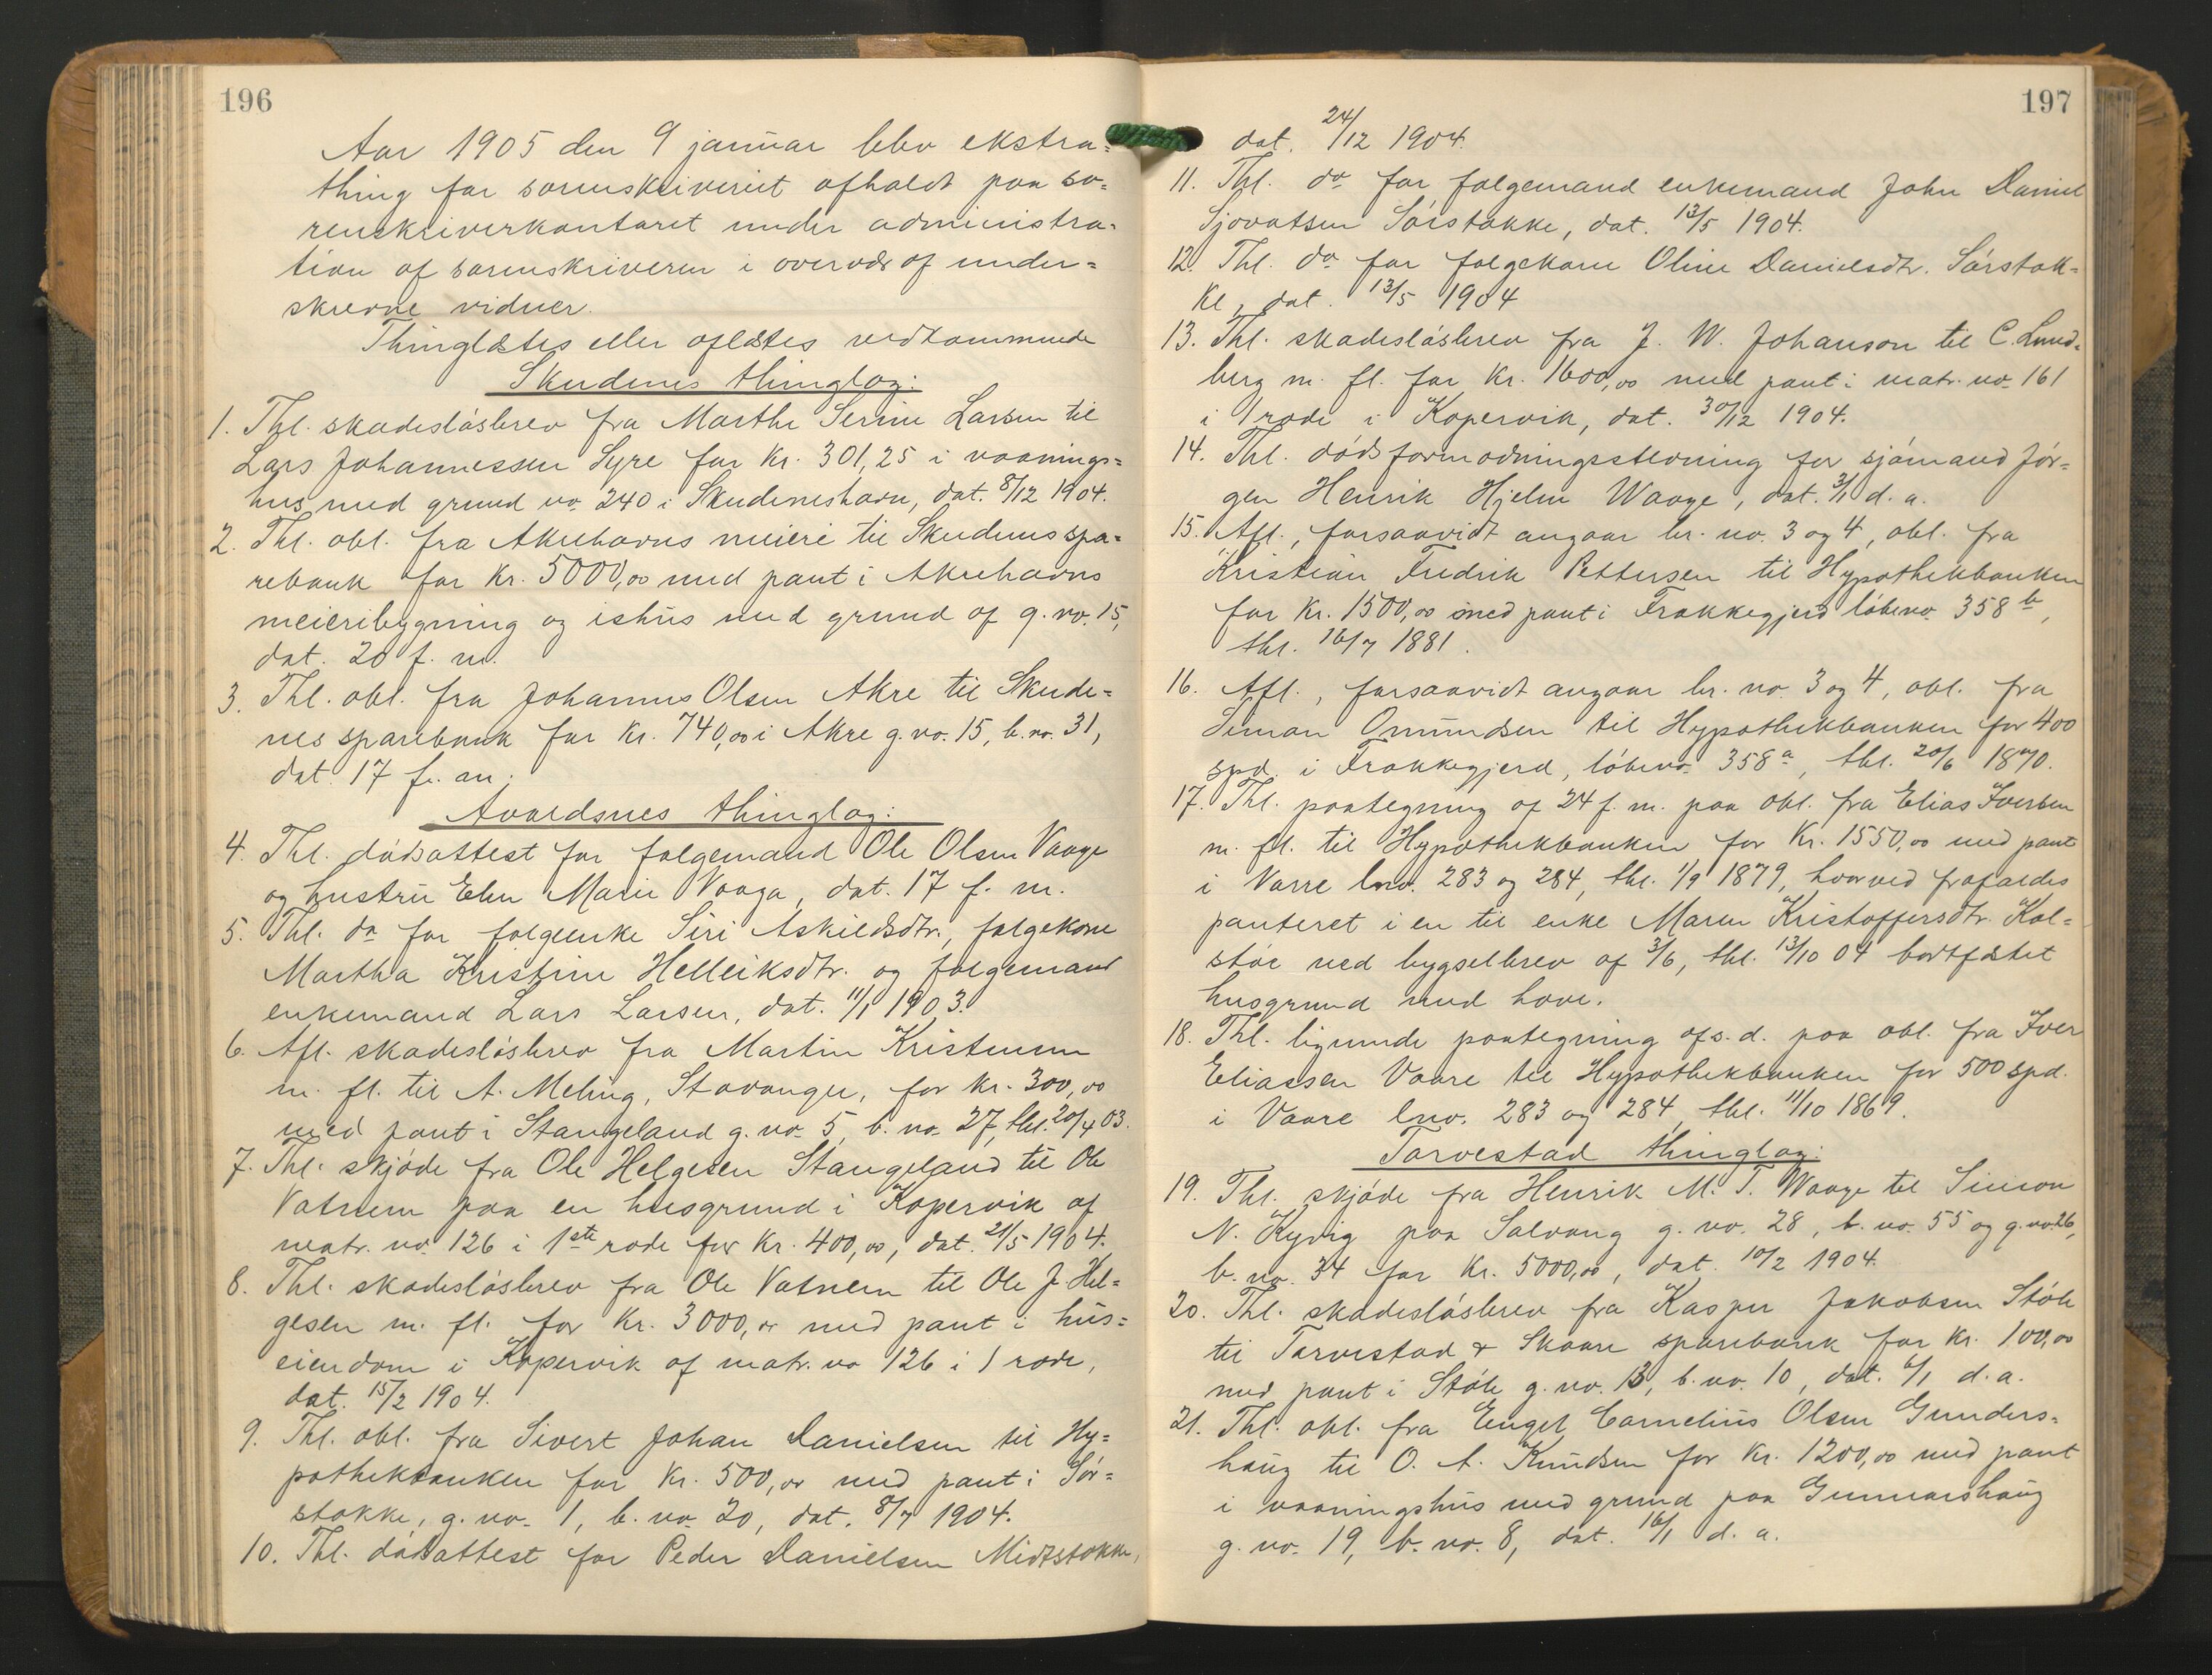 196
Aar 1905 den 9 januar blev ekstra=
thing for sorenskriveriet afholdt paa so=
renskriverkontoret under administra=
tion af sorenskriveren i overvær af under=
skrevne vidner.
Thinglæstes eller aflæstes vedkommende
Skudenes thinglag:
1. Thl. skadesløsbrev fra Marthe Serine Larsen til
Lars Johannessen Syre for kr. 301,25 i vaanings=
hus med grund no. 240 i Skudeneshavn, dat. 8/12 1904.
2. Thl. obl. fra Akrehavns meieri til Skudenes spa=
rebank for kr. 5000,00 med pant i Akrehavns
meieribygning og ishus med grund af g. no. 15,
dat. 20 f. m.
3. Thl. obl. fra Johannes Olsen Akre til Skude=
nes sparebank for kr. 740,00 i Akre g. no. 15, b. no. 31,
dat. 17 f. m.
Avaldsnes thinglag:
4. Thl. dødsattest for følgemand Ole Olsen Vaage
og hustru Elen Marie Vaaga, dat. 17 f. m.
5. Thl. do for følgeenke Siri Askildsdtr., følgekone
Martha Kristine Helleiksdtr. og følgemand
enkemand Lars Larsen, dat. 11/1 1903.
6. Afl. skadesløsbrev fra Martin Kristensen
m. fl. til A. Meling, Stavanger, for kr. 300,00
med pant i Stangeland g. no. 5, b. no. 27, thl. 20/4 03.
7. Thl. skjøde fra Ole Helgesen Stangeland til Ole
Vatnem paa en husgrund i Kopervik af
matr. no. 126 i 1ste rode for kr. 400,00, dat. 21/5 1904.
8. Thl. skadesløsbrev fra Ole Vatnem til Ole J. Hel=
gesen m. fl. for kr. 3000,00 med pant i hus=
eiendom i Kopervik af matr. no 126 i 1 rode,
dat. 15/2 1904.
9. Thl. obl. fra Sivert Johan Danielsen til Hy=
pothekbanken for kr. 500,00 med pant i Sør=
stokke, g. no. 1, b. no. 20, dat. 8/7 1904.
10. Thl. dødsattest for Peder Danielsen Midtstokke,
197
dat. 24/12 1904.
11. Thl. do for følgemand enkemand John Daniel
Sjovatsen Sørstokke, dat. 13/5 1904.
12. Thl. do for følgekone Oline Danielsdtr. Sørstok=
ke, dat. 13/5 1904
13. Thl. skadesløsbrev fra J. W. Johanson til C. Lund=
berg m. fl. for kr. 1600,00 med pant i matr. no. 161
i 1 rode i Kopervik, dat. 30/12 1904.
14. Thl. dødsformodningsstevning for sjømand Jør=
gen Henrik Hjelm Waage, dat. 3/1 d. a.
15. Afl., forsaavidt angaar br. no. 3 og 4, obl. fra
Kristian Fredrik Pettersen til Hypothekbanken
for kr. 1500,00 med pant i Frakkegjerd løbeno. 358 b,
thl. 16/7 1881.
16. Afl., forsaavidt angaar br. no. 3 og 4, obl. fra
Simon Omundsen til Hypothekbanken for 400
spd. i Frakkegjerd, løbeno. 358 a, thl. 20/6 1870.
17. Thl. paategning af 24 f. m. paa obl. fra Elias Iversen
m. fl. til Hypothekbanken for kr. 1550,00 med pant
i Varre lno. 283 og 284, thl. 1/9 1879, hvorved frafaldes
panteret i en til enke Maren Kristoffersdtr. Kol=
stø ved bygselbrev af 3/6, thl. 13/10 04 bortfæstet
husgrund med have.
18. Thl. lignende paategning af s. d. paa obl. fra Iver
Eliassen Vaare til Hypothekbanken for 500 spd.
i Vaare lno. 283 og 284, thl. 11/10 1869.
Torvestad thinglag:
19. Thl. skjøde fra Henrik M. T. Waage til Simon
N. Kyvig paa Salvang g. no. 28, b. no. 55 og g. no. 26,
b. no. 34 for kr. 5000,00, dat. 10/2 1904.
20. Thl. skadesløsbrev fra Kasper Jakobsen Støle
til Torvestad & Skaare sparebank for kr. 100,00
med pant i Støle g. no. 13, b. no. 10, dat. 6/1 d. a.
21. Thl. obl. fra Engel Cornelius Olsen Gunders=
haug til O. A. Knudsen for kr. 1200,00 med pant
i vaaningshus med grund paa Gunnarshaug
g. no. 19, b. no. 8, dat. 16/1 d. a.